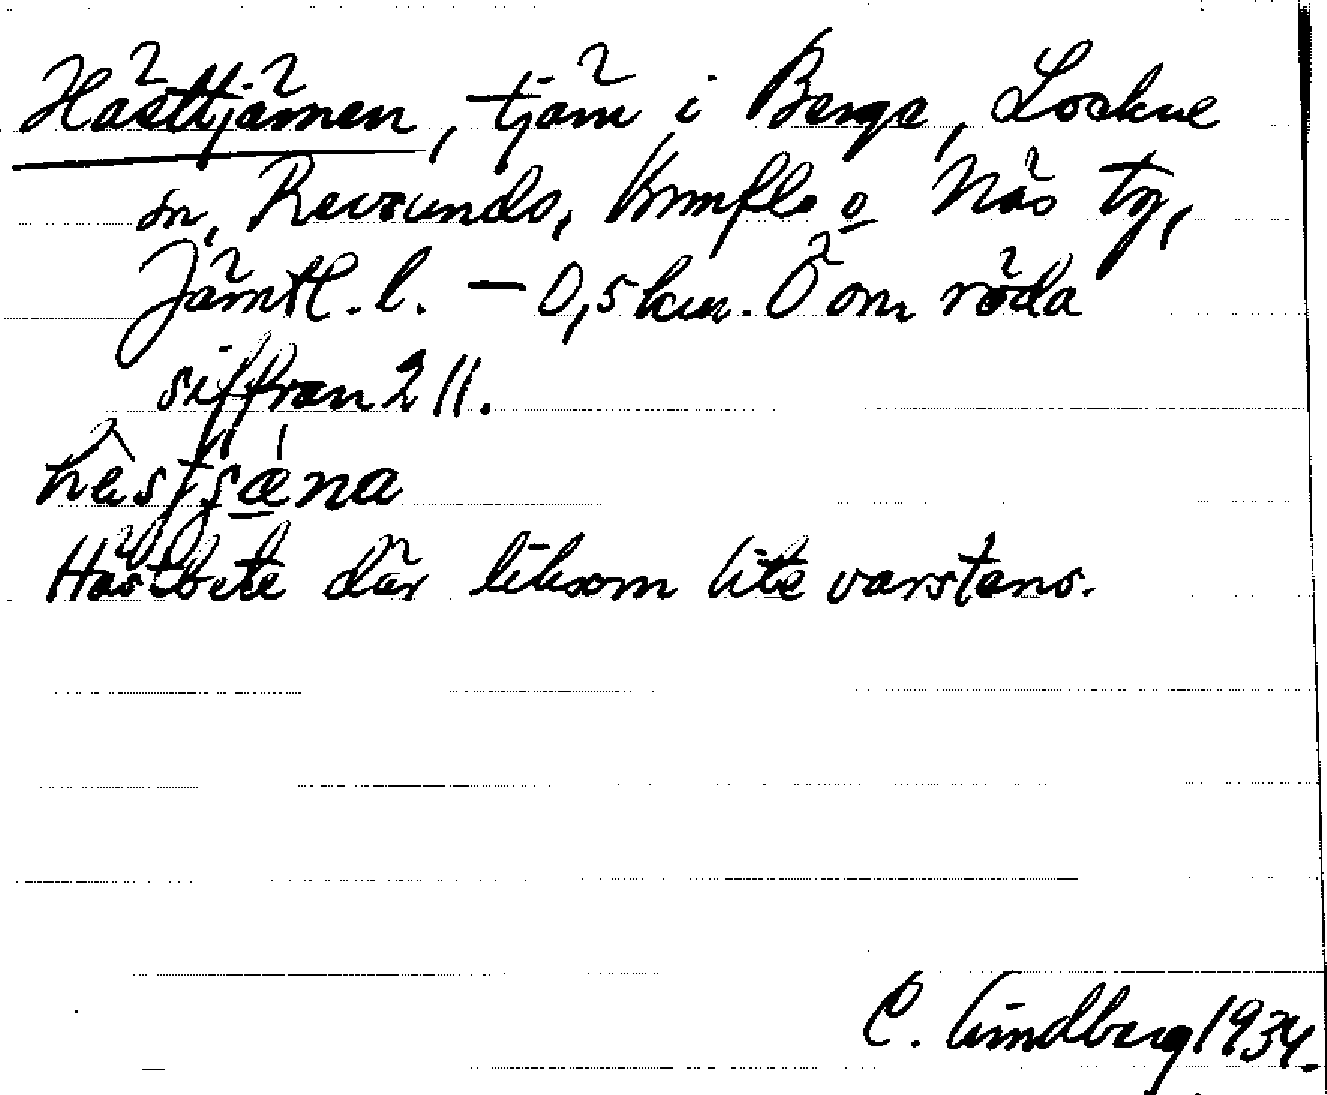 Hästtjärnen, tjärn i Berge, Lockne
sn, Revsunds, Brunflo o Näs tg,
Jämtl. l. – 0,5 km. Ö om röda
siffran 211.
Hästbete där liksom lite varstans.
C. Lindberg 1934.